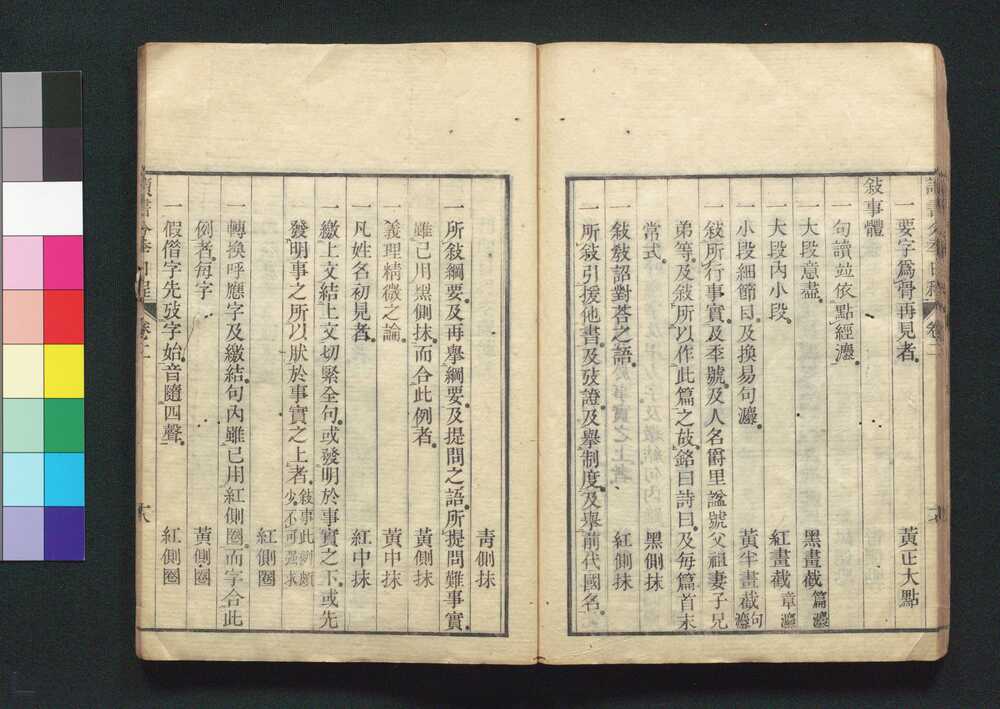 讀書分年日程 卷二
一要字爲骨再見者 黃正大點
敍事體
一句讀竝依點經灋
一大段意盡 黑畫截篇灋
一大段內小段 紅畫截章灋
一小段細節目及換易句灋 黃半畫截句灋
一敍所行事實及年號及人名爵里諡號父祖妻子兄
弟等及敍所以作此篇之故銘曰詩曰及每篇首末
常式 黑側抹
一敍敎詔對荅之語 紅側抹
一所敍引援他書及攷證及擧制度及擧前代國名
青側抹
一所敍綱要及再擧綱要及提問之語所提問難事實
雖已用黑側抹而合此例者 黃側抹
一義理精微之論 黃中抹
一凡姓名初見者 紅中抹
一繳上文結上文切緊全句或發明於事實之下或先
發明事之所以狀於事實之上者敍事此例頗少不可强求
紅側圈
一轉換呼應字及繳結句內雖已用紅側圈而字合此
例者每字 黃側圈
一假借字先攷字始音隨四聲 紅側圈
讀書分年日程 卷二